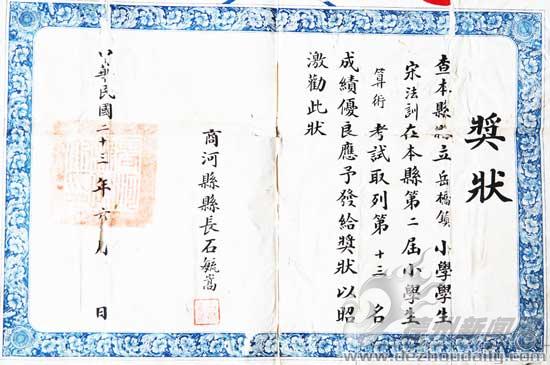 獎狀
查本縣縣立岳橋鎮小學學生
宋法訓在本縣第二屆小學生
算術考試取列第十三名
成績優良應予發給獎狀以昭
激勸此狀
商河縣縣長石毓嵩
中華民國二十三年六月 日
德州新闻网
www.dezhoudaily.com